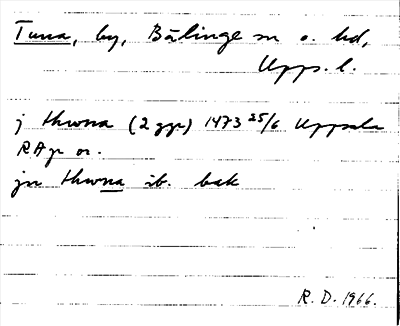 Tuna, by, Bälinge sn o. hd,
Upps. l.
j thwna (2 ggr) 1473 25/6 Uppsala
RAp or.
jn thwna ib. bak
R. D. 1966.